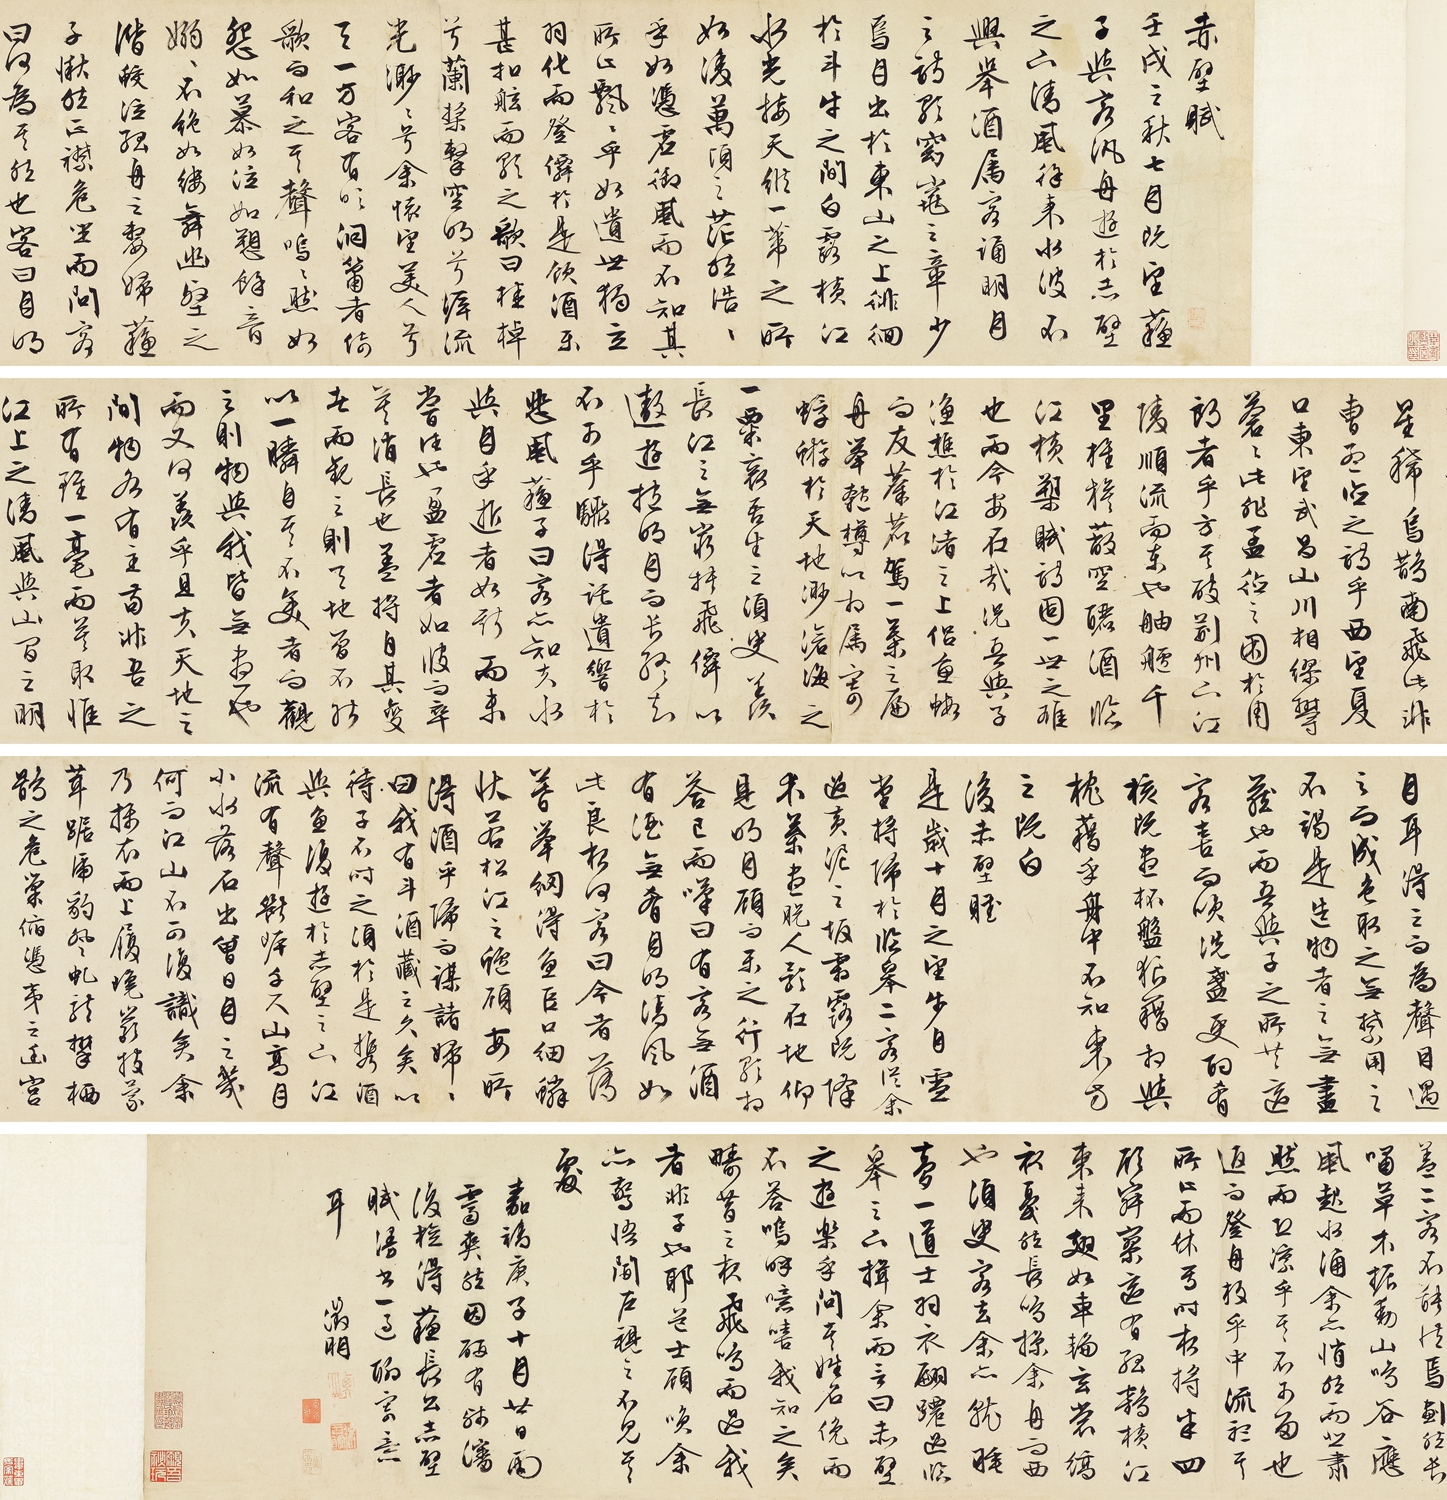 赤壁賦
壬戌之秋七月既望蘇
子與客汎舟遊於赤壁
之下清風徐來水波不
興舉酒屬客誦明月
之詩歌窈窕之章少
焉月出於東山之上徘徊
於斗牛之間白露橫江
水光接天縱一葦之所
如凌萬頃之茫然浩〻
乎如憑虛御風而不知其
所止飄〻乎如遺世獨立
羽化而登僊於是飲酒樂
甚扣舷而歌之歌曰桂棹
兮蘭槳擊空明兮泝流
光渺〻兮余懷望美人兮
天一方客有吹洞簫者倚
歌而和之其聲嗚〻然如
怨如慕如泣如愬餘音
嫋〻不絕如縷舞幽壑之
潛蛟泣孤舟之嫠婦蘇
子愀然正襟危坐而問客
曰何為其然也客曰月明
星稀烏鵲南飛此非
曹孟德之詩乎西望夏
口東望武昌山川相繆鬱
蒼〻此非孟德之困於周
郎者乎方其破荊州下江
陵順流而東也舳艫千
里旌旗蔽空釃酒臨
江橫槊賦詩固一世之雄
也而今安在哉況吾與子
漁樵於江渚之上侶魚蝦
而友麋鹿駕一葉之扁
舟舉匏樽以相屬寄
蜉蝣於天地渺滄海之
一粟哀吾生之須臾羨
長江之無窮挾飛僊以
遨遊抱明月而長終知
不可乎驟得託遺響於
悲風蘇子曰客亦知夫水
與月乎逝者如斯而未
嘗往也盈虛者如彼而卒
莫消長也蓋將自其變
者而觀之則天地曾不能
以一瞬自其不變者而觀
之則物與我皆無盡也
而又何羨乎且夫天地之
間物各有主苟非吾之
所有雖一毫而莫取惟
江上之清風與山間之明
月耳得之而為聲目遇
之而成色取之無禁用之
不竭是造物者之無盡
藏也而吾與子之所共適
客喜而笑洗盞更酌肴
核既盡杯盤狼藉相與
枕藉乎舟中不知東方
之既白
後赤壁賦
是歲十月之望步自雪
堂將歸於臨皋二客從余
過黃泥之坂霜露既降
木葉盡脫人影在地仰
見明月顧而樂之行歌相
答已而嘆曰有客無酒
有酒無肴月白清風如
此良夜何客曰今者薄
暮舉網得魚巨口細鱗
狀若松江之鱸顧安所
得酒乎歸而謀諸婦〻
曰我有斗酒藏之久矣以
待子不時之須於是攜酒
與魚復遊於赤壁之下江
流有聲斷岸千尺山高月
小水落石出曾日月之幾
何而江山不可復識矣余
乃攝衣而上履巉巖披蒙
茸踞虎豹登虬龍攀栖
鶻之危巢俯馮夷之幽宮
蓋二客不能從焉劃然長
嘯草木振動山鳴谷應
風起水涌余亦悄然而悲肅
然而恐凜乎其不可留也
返而登舟放乎中流聽其
所止而休焉時夜將半四
顧寂寥適有孤鶴橫江
東來翅如車輪玄裳縞
衣戛然長鳴掠余舟而西
也須臾客去余亦就睡
夢一道士羽衣翩躚過臨
皋之下揖余而言曰赤壁
之遊樂乎問其姓名俛而
不答嗚呼噫嘻我知之矣
疇昔之夜飛鳴而過我
者非子也耶道士顧笑余
亦驚悟開戶視之不見其
處
嘉靖庚子十月廿日雨
霽爽然因硯有餘瀋
後檢得蘇長公赤壁
賦漫書一過聊寄意
耳
徵明